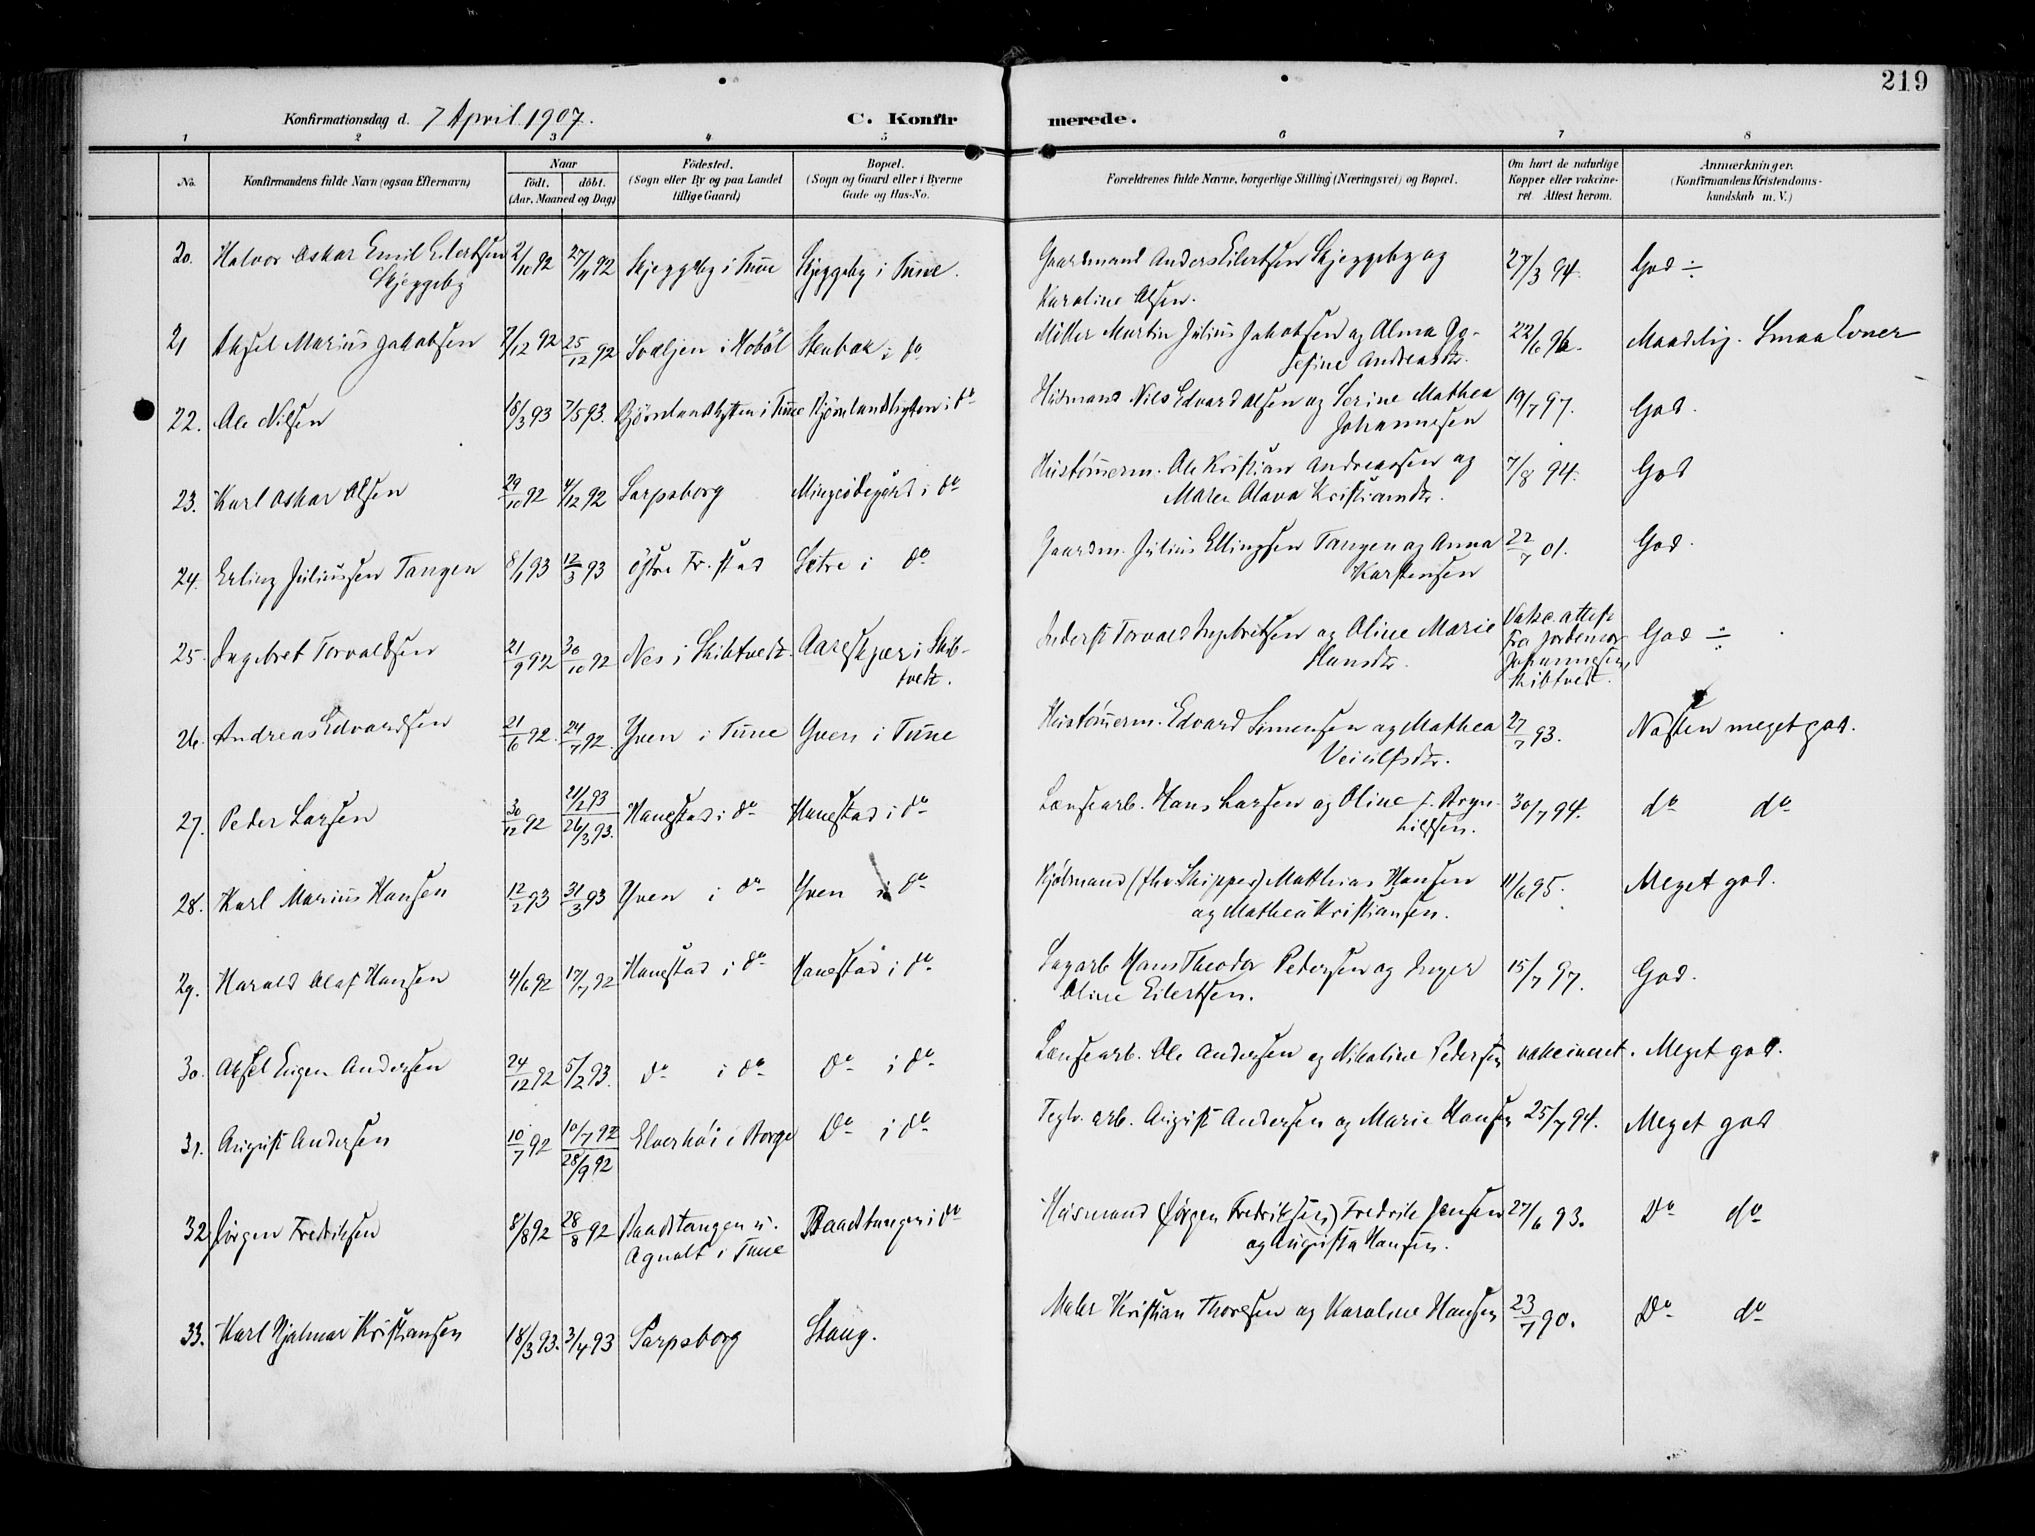 219
Konfirmationsdag d. 7 April 1907. C. Konfirmerede.
1 2 3 4 5 6 7 8
No. Konfirmandens fulde Navn (ogsaa Efternavn) Naar födt. döbt. (Aar, Maaned og Dag) Födested. (Sogn eller By og paa Landet tillige Gaard) Bopæl. (Sogn og Gaard eller i Byerne Gade og Hus-No. Forældrenes fulde Navne, borgerlige Stilling (Næringsvei) og Bopæl. Om havt de naturlige Kopper eller vakcineret Attest herom. Anmærkninger. (Konfirmandens Kristendomskundskab m. V.)
20. Halvor Oskar Emil Eilertsen 2/10 92 27/11 92 Skjeggeby i Tune Skjeggeby i Tune. Gaardmand Anders Eilertsen Skjeggeby og 27/3 94. God ÷
Skjeggeby Karoline Olsen.
21 Aksel Marius Jakobsen 7/12 92 25/12 92 i Hobøl Stenbæk i do Møller Martin Julius Jakobsen og Alma Jo- 22/6 96. Maadelig. Smaa Evner
sefine Andreasdr.
22. Ole Nilsen 18/3 93 7/5 93. Bjørnlandhytten i Tune Bjørnlandhytten i do Husmand Nils Edvard Olsen og Serine Mathea 19/7 97. God.
Johannessen
23. Karl Oskar Olsen 29/10 92 4/12 92 Sarpsborg Mingeødegård i do Hustømmerm. Ole Kristian Andreassen og 7/8 94. God
Maren Olava Kristiansdr.
24. Erling Juliussen Tangen 8/1 93 12/3 93 Østre Fr.stad Setre i do Gaardm. Julius Ellingsen Tangen og Anna 22/7 01. God.
Karstensen
25. Ingebret Torvaldsen 21/9 92 30/10 92 Nes i Skibtvedt. Aareskjær i Skib- Inderst Torvald Ingebretsen og Oline Marie Vakc. attest God ÷
tvedt. Hansdr. fra Jordemor
Johannesen,
Skibtvedt.
26. Andreas Edvardsen 21/6 92. 24/7 92. Yven i Tune Yven i Tune Hustømmerm. Edvard Simensen og Mathea 27/7 93. Næsten meget god.
Veiulfsdr.
27. Peder Larsen 30/12 92 21/2 93 Hanestad i do Hanestad i do Lænsearb. Hans Larsen og Oline f. Bryn- 30/7 94. do do
26/3 93. hildsen.
28. Karl Marius Hansen 12/2 93 31/3 93 Yven i do Yven i do Kjølmand (fhv. Skipper) Matthias Hansen 11/6 95. Meget god.
og Mathea Kristiansen.
29. Harald Olaf Hansen 4/6 92 17/7 92 Hanestad i do Hanestad i do Sagarb Hans Theodor Pedersen og Inger 15/7 97. God.
Oline Eilertsen.
30. Aksel Eugen Andersen 24/12 92 5/2 93. do i do do i do Lænsearb. Ole Andersen og Nikoline Pedersen vakcineret. Meget god.
31. August Andersen 10/7 92 10/7 92 Elverhøi i Borge Do i do Teglv. arb. August Andersen og Marie Hansen 25/7 94. Meget god
28/9 92
32 Jörgen Fredriksen 8/8 92 28/8 92 Baadtangen u. Baadtangen i do Husmand (Jörgen Fredriksen) Fredrik Jensen 27/6 93. Do do
Agnalt i Tune og Augusta Hansen.
33. Karl Hjalmar Kristiansen 18/3 93. 3/4 93 Sarpsborg Stang. Maler Kristian Thoresen og Karoline Hansen 23/7 90. Do do